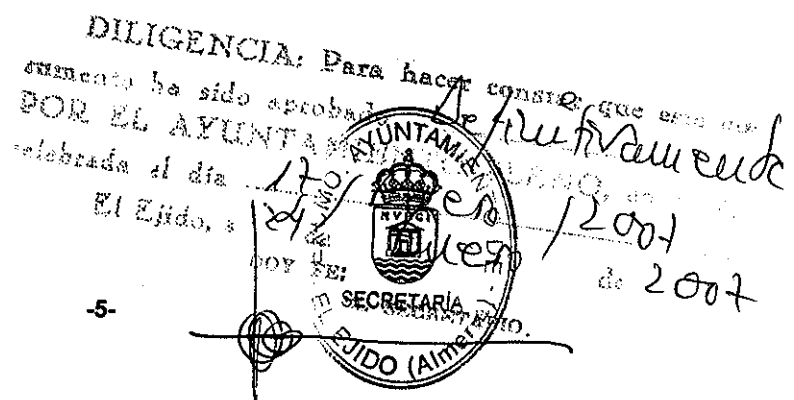 DILIGENCIA: Para hacer constar que este do-
cumento ha sido aprobado definitivamente
POR EL AYUNTAMIENTO PLENO, en
celebrada el día 17 / enero / 2007
El Ejido, a 24 / enero de 2007
DOY FE:
EL SECRETARIO.
EXCMO. AYUNTAMIENTO
SECRETARÍA
EL EJIDO (Almería)
-5-